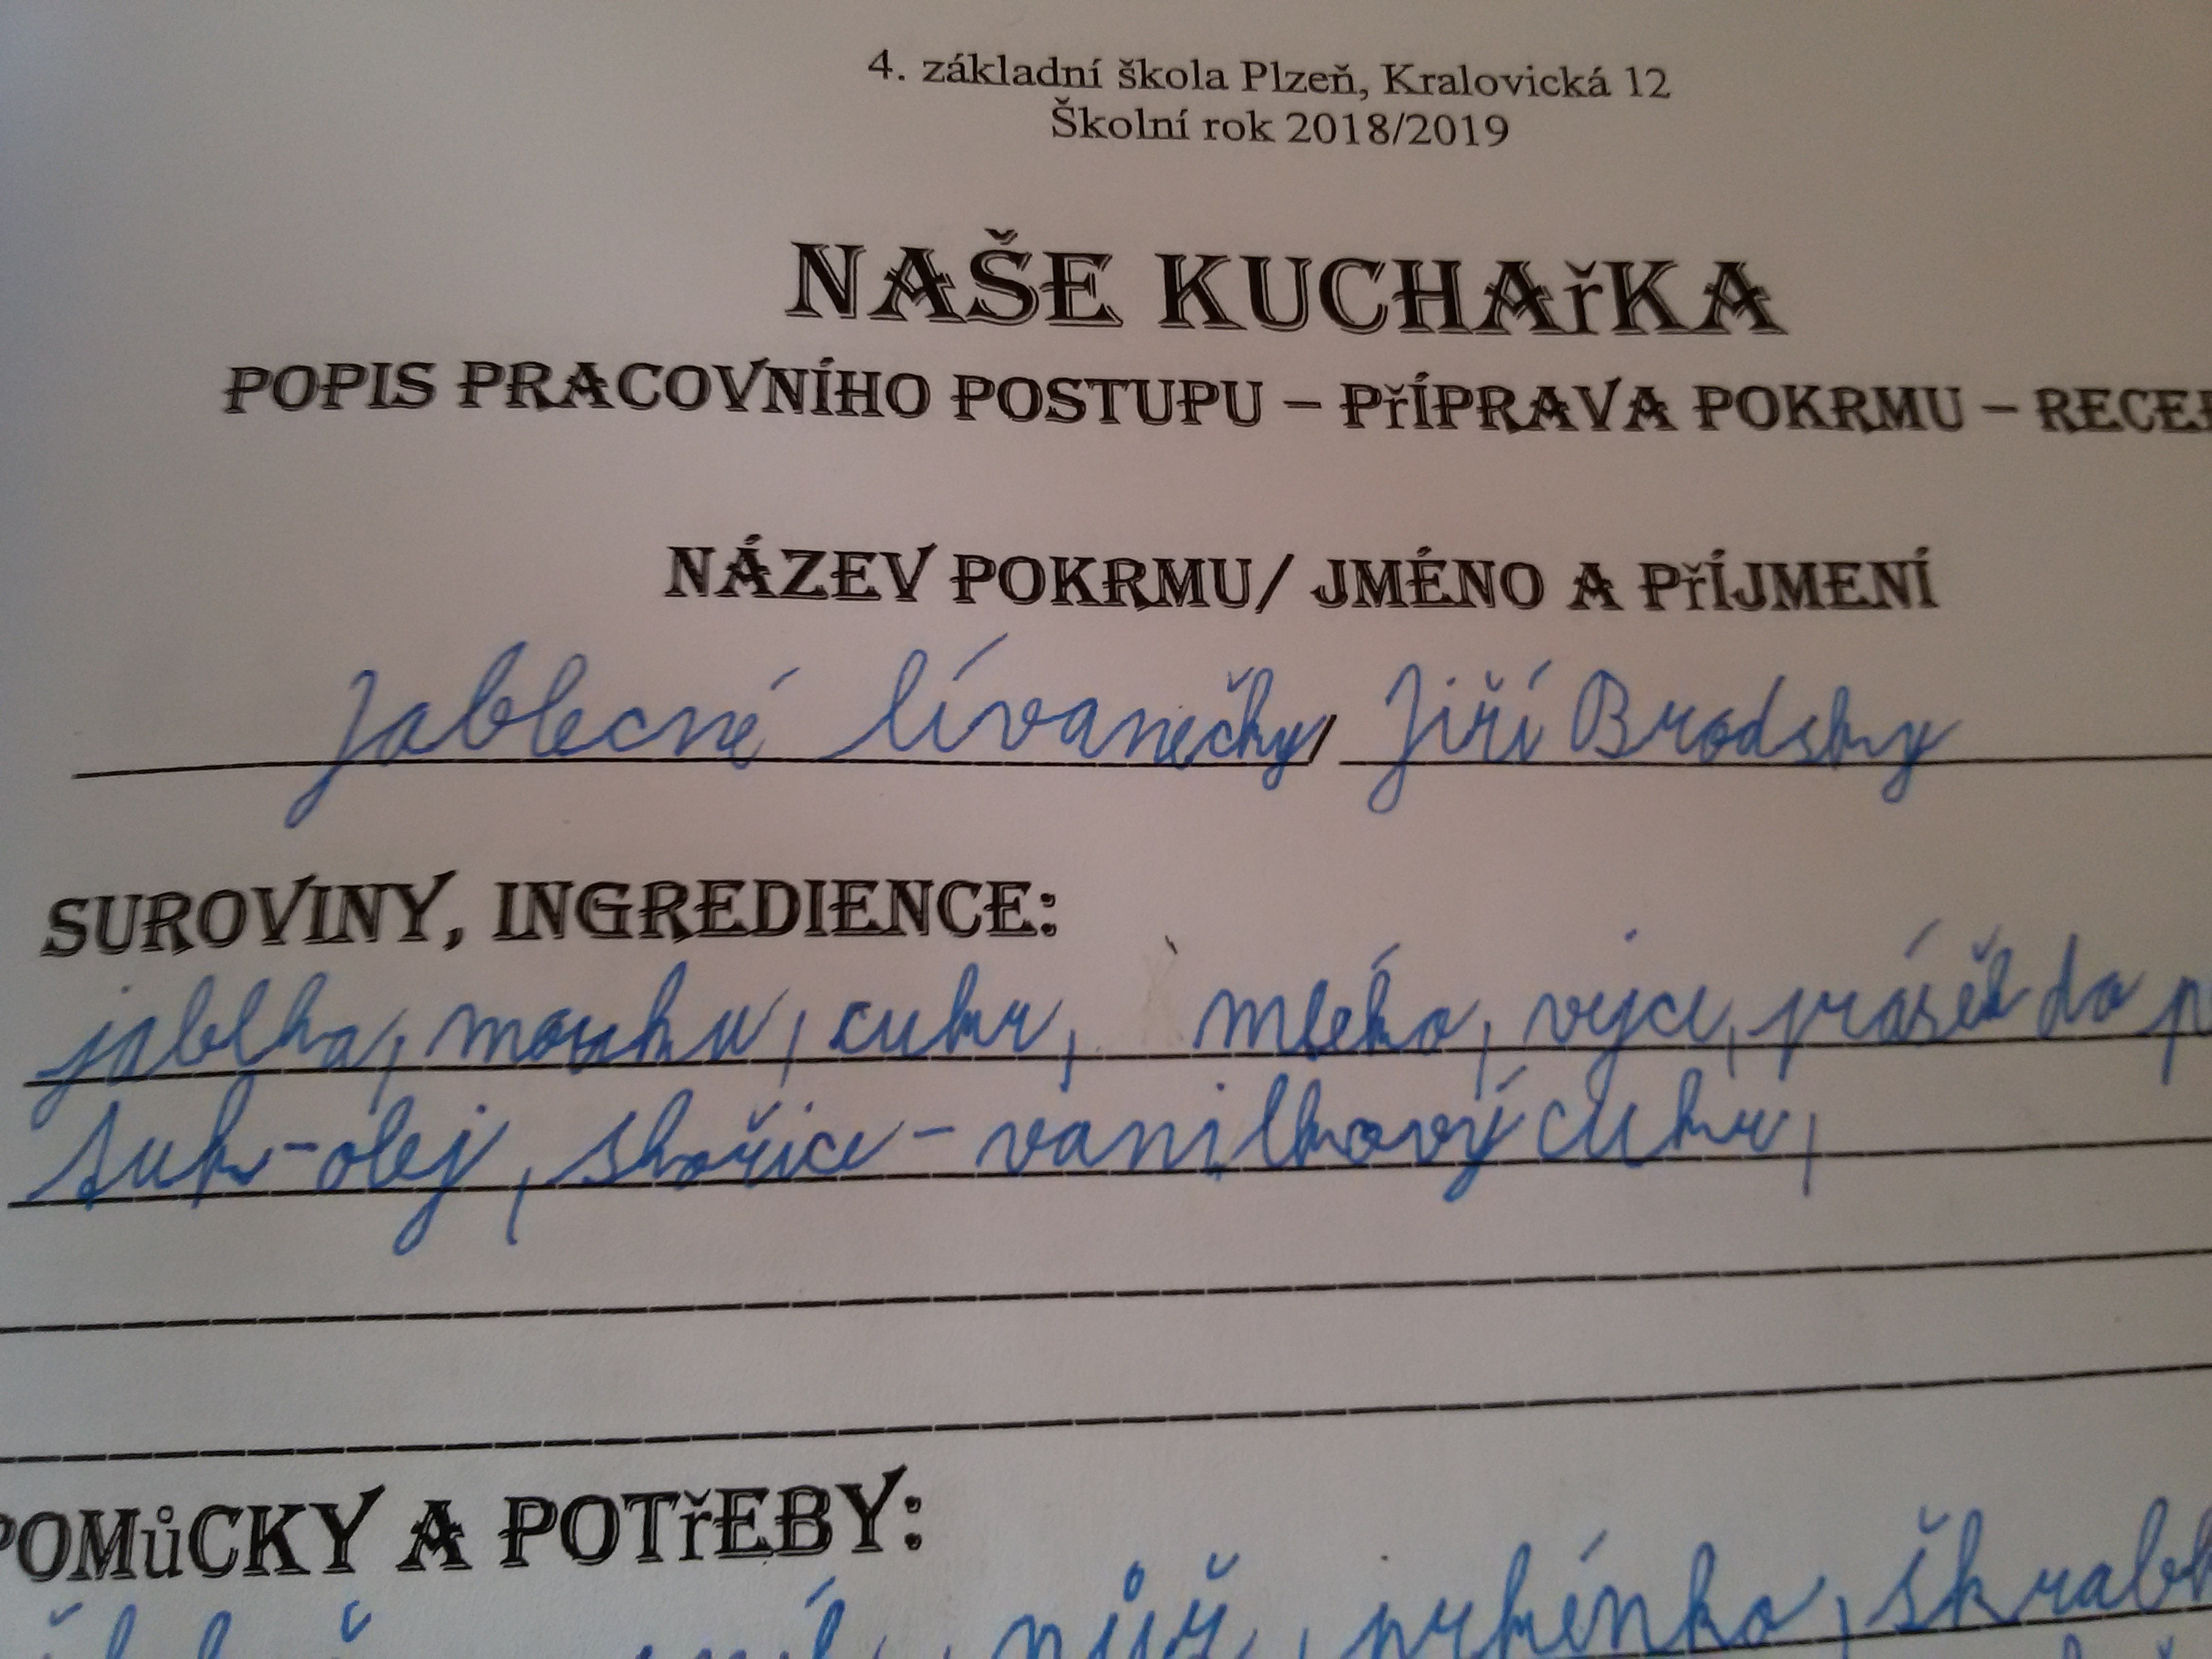 4. základní škola Plzeň, Kralovická 12
Školní rok 2018/2019
NAŠE KUCHAřKA
POPIS PRACOVNÍHO POSTUPU – PříPRAVA POKRMU – RECEP
NÁZEV POKRMU/ JMÉNO A PříJMENÍ
Jablecné lívanečky/ Jiří Brodsky
SUROVINY, INGREDIENCE:
jablka, mouku, cukr, mléko, vejce, prásěk do p
tuk-olej, skořice-vanilkový cukr,
POMůCKY A POTřEBY:
nůž, prkénko, škrabk